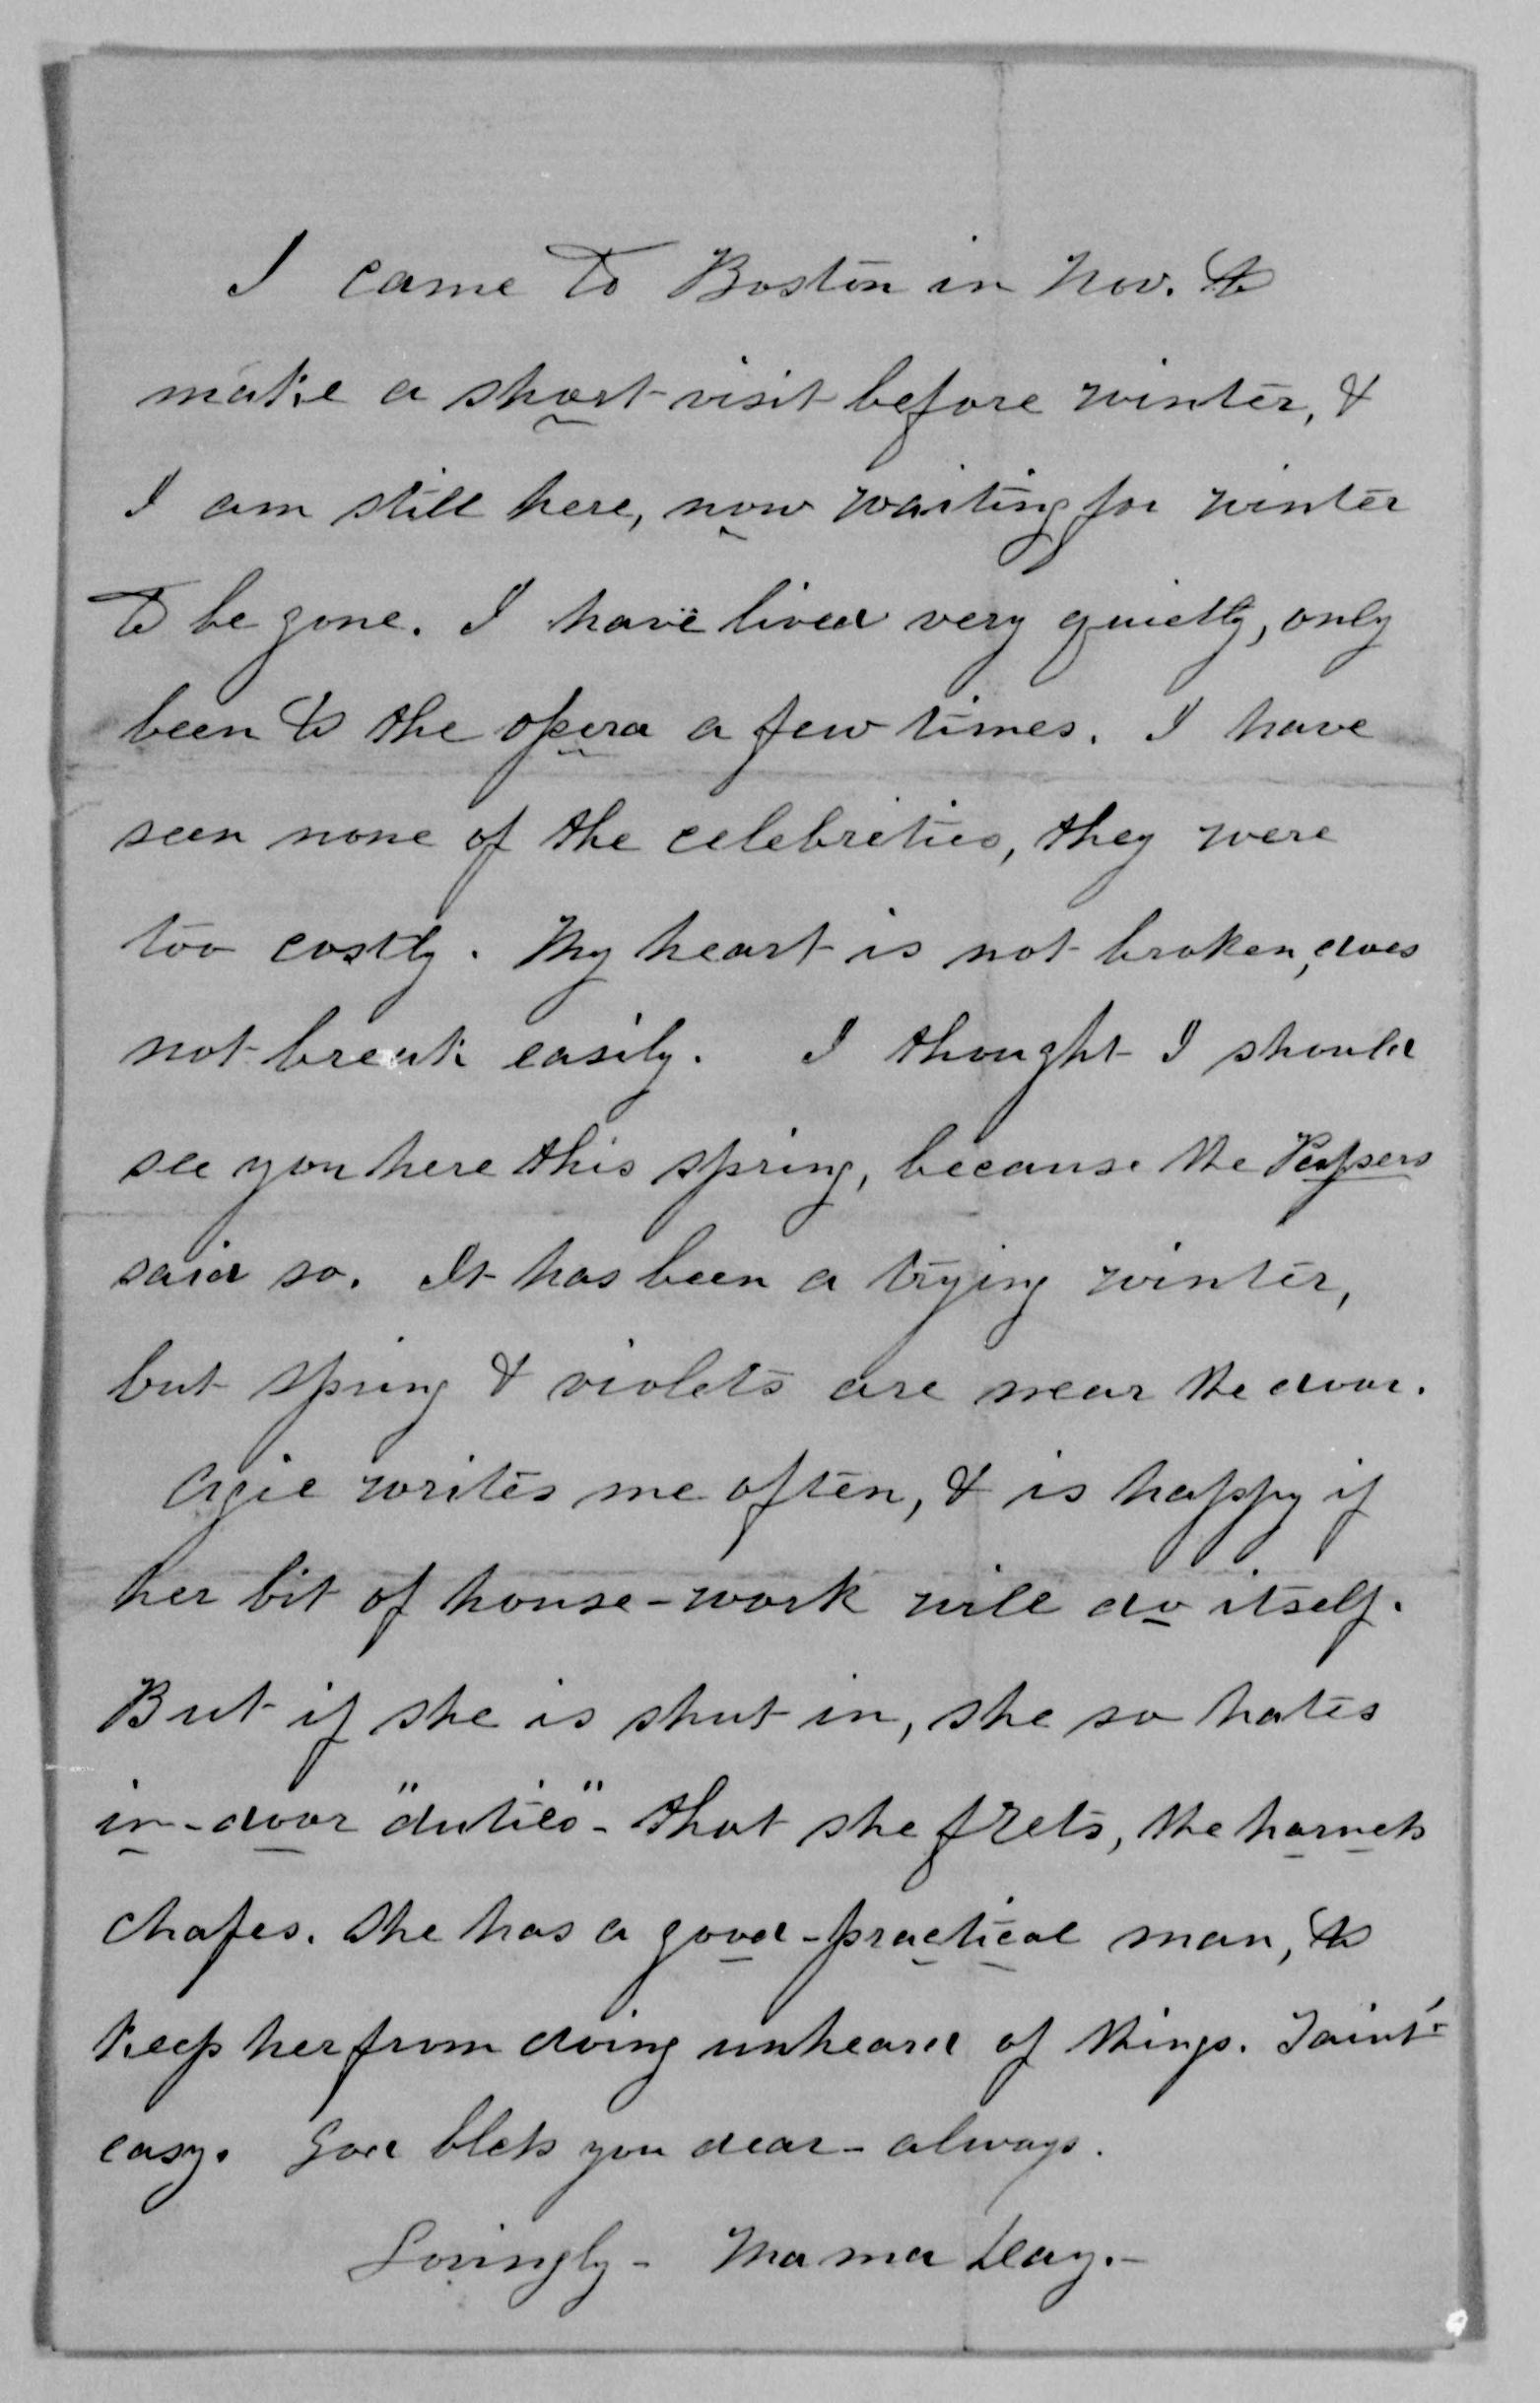 I came to Boston in Nov. to
make a short visit before winter, &
I am still here, now waiting for winter
to be gone. I have lived very quietly, only
been to the opera a few times. I have
seen none of the celebrities, they were
too costly. My heart is not broken, does
not break easily. I thought I should
see you here this spring, because the Papers
said so. It has been a trying winter,
but spring & violets are near the door.
Agie writes me often, & is happy if
her bit of house-work will do itself.
But if she is shut in, she so hates
in-door "duties" - that she frets, the harness
chafes. She has a good-practical man, to
keep her from doing unheard of things. Taint
easy. God bless you dear - always.
Lovingly - Mama Day. -